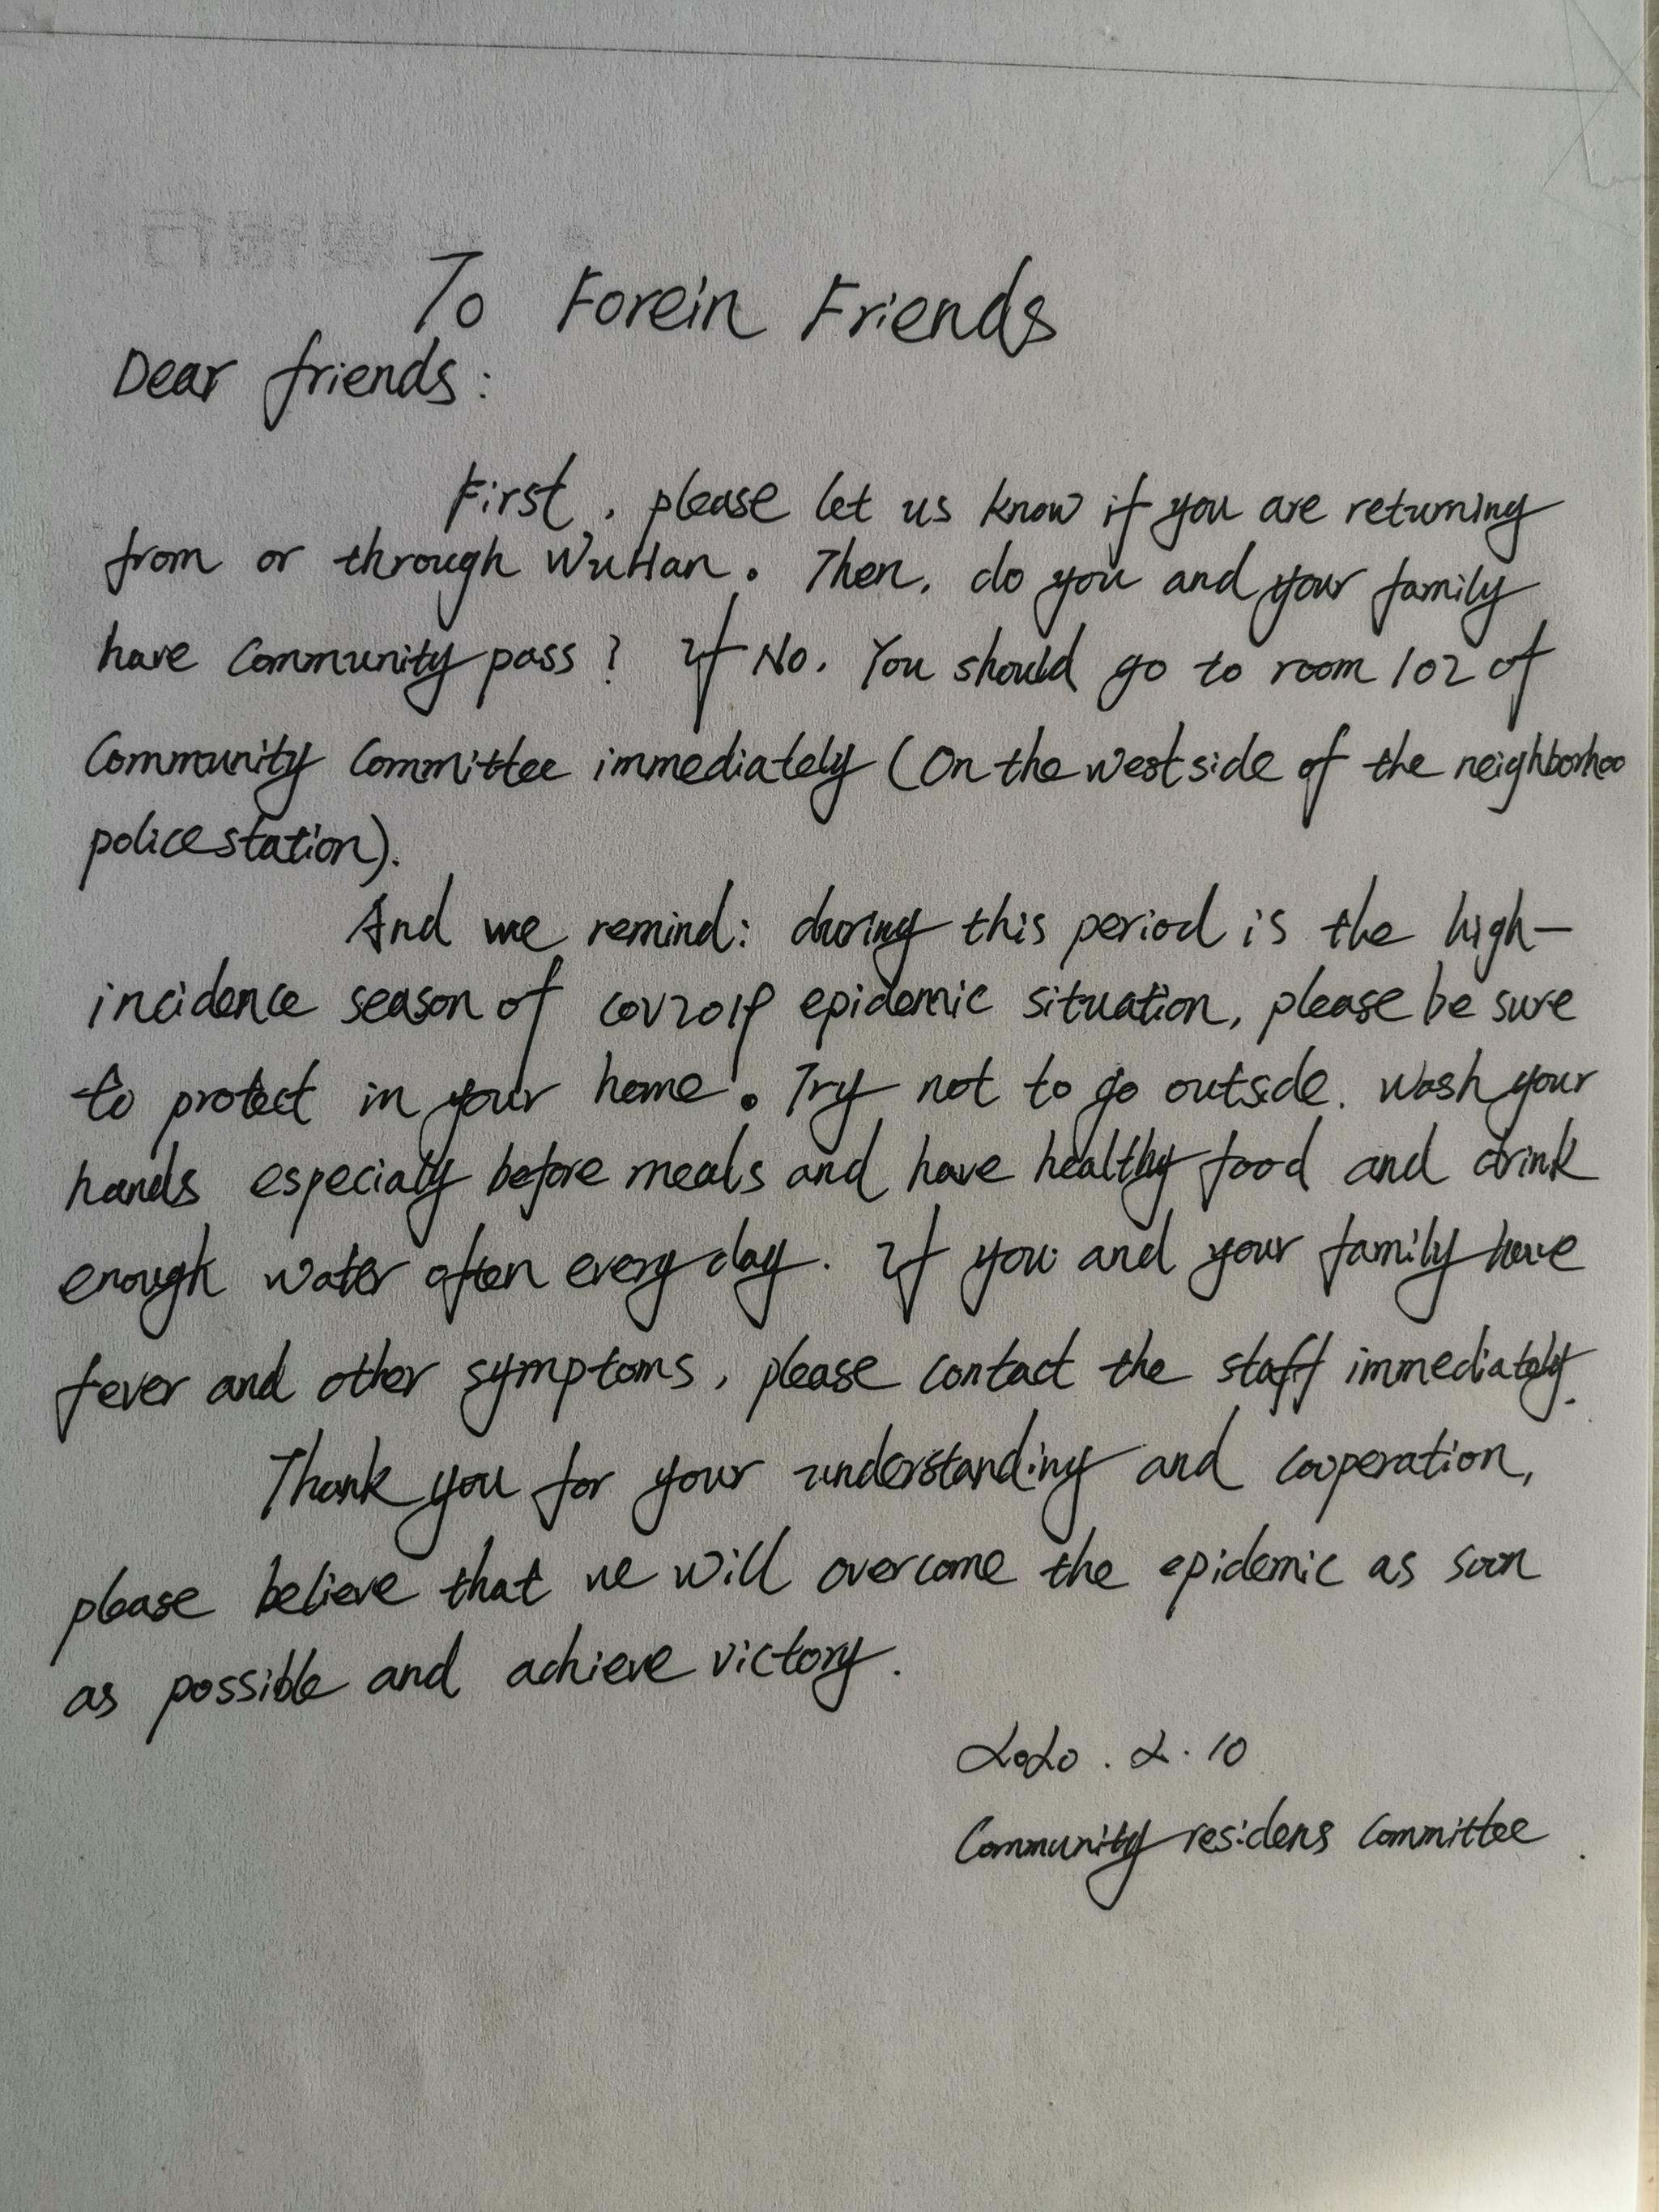 To Forein Friends
Dear friends:
First, please let us know if you are returning
from or through WuHan. Then, do you and your family
have Community pass? If No. You should go to room 102 of
Community Committee immediately (On the west side of the neighborhoo
police station).
And we remind: during this period is the high-
incidence season of cov2019 epidemic situation, please be sure
to protect in your home. Try not to go outside. Wash your
hands especially before meals and have healthy food and drink
enough water often every day. If you and your family have
fever and other symptoms, please contact the staff immediately.
Thank you for your understanding and cooperation,
please believe that we will overcome the epidemic as soon
as possible and achieve victory.
2020.2.10
Community residens Committee.